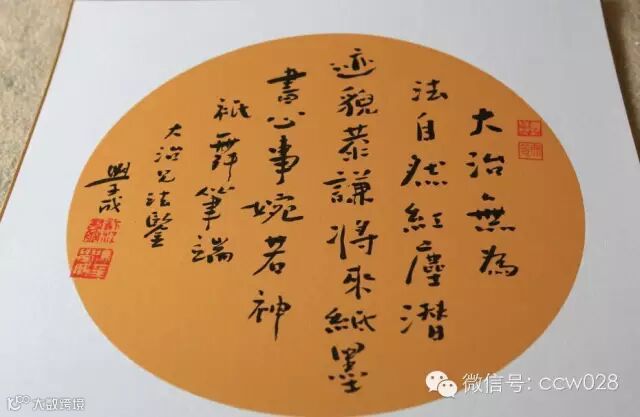 大治無為
法自然紅塵潛
迹貌恭謙將來紙墨
書心事婉若神
祇舞筆端
大治兄法鑒
微信号: ccw028
大数跨境